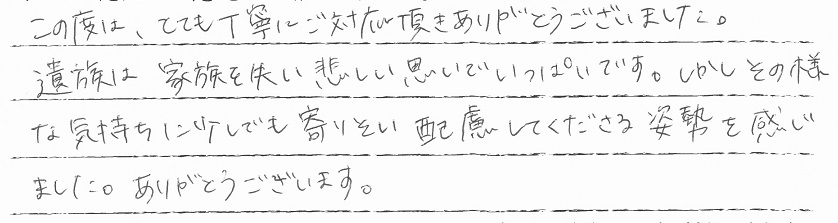 この度は、とても丁寧にご対応頂きありがとうございました。
遺族は家族を失い悲しい思いでいっぱいです。しかしその様
な気持ちに少しでも寄りそい配慮してくださる姿勢を感じ
ました。ありがとうございます。